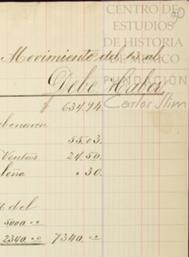 CENTRO DE
ESTUDIOS
DE HISTORIA
DE MÉXICO
FUNDACIÓN
Carlos Slim
Movimiento del 15 al
Debe Haber
$ 634.94
55.03.
Ventas 24.50.
leña " 30.
t. del
500a
234a 734a